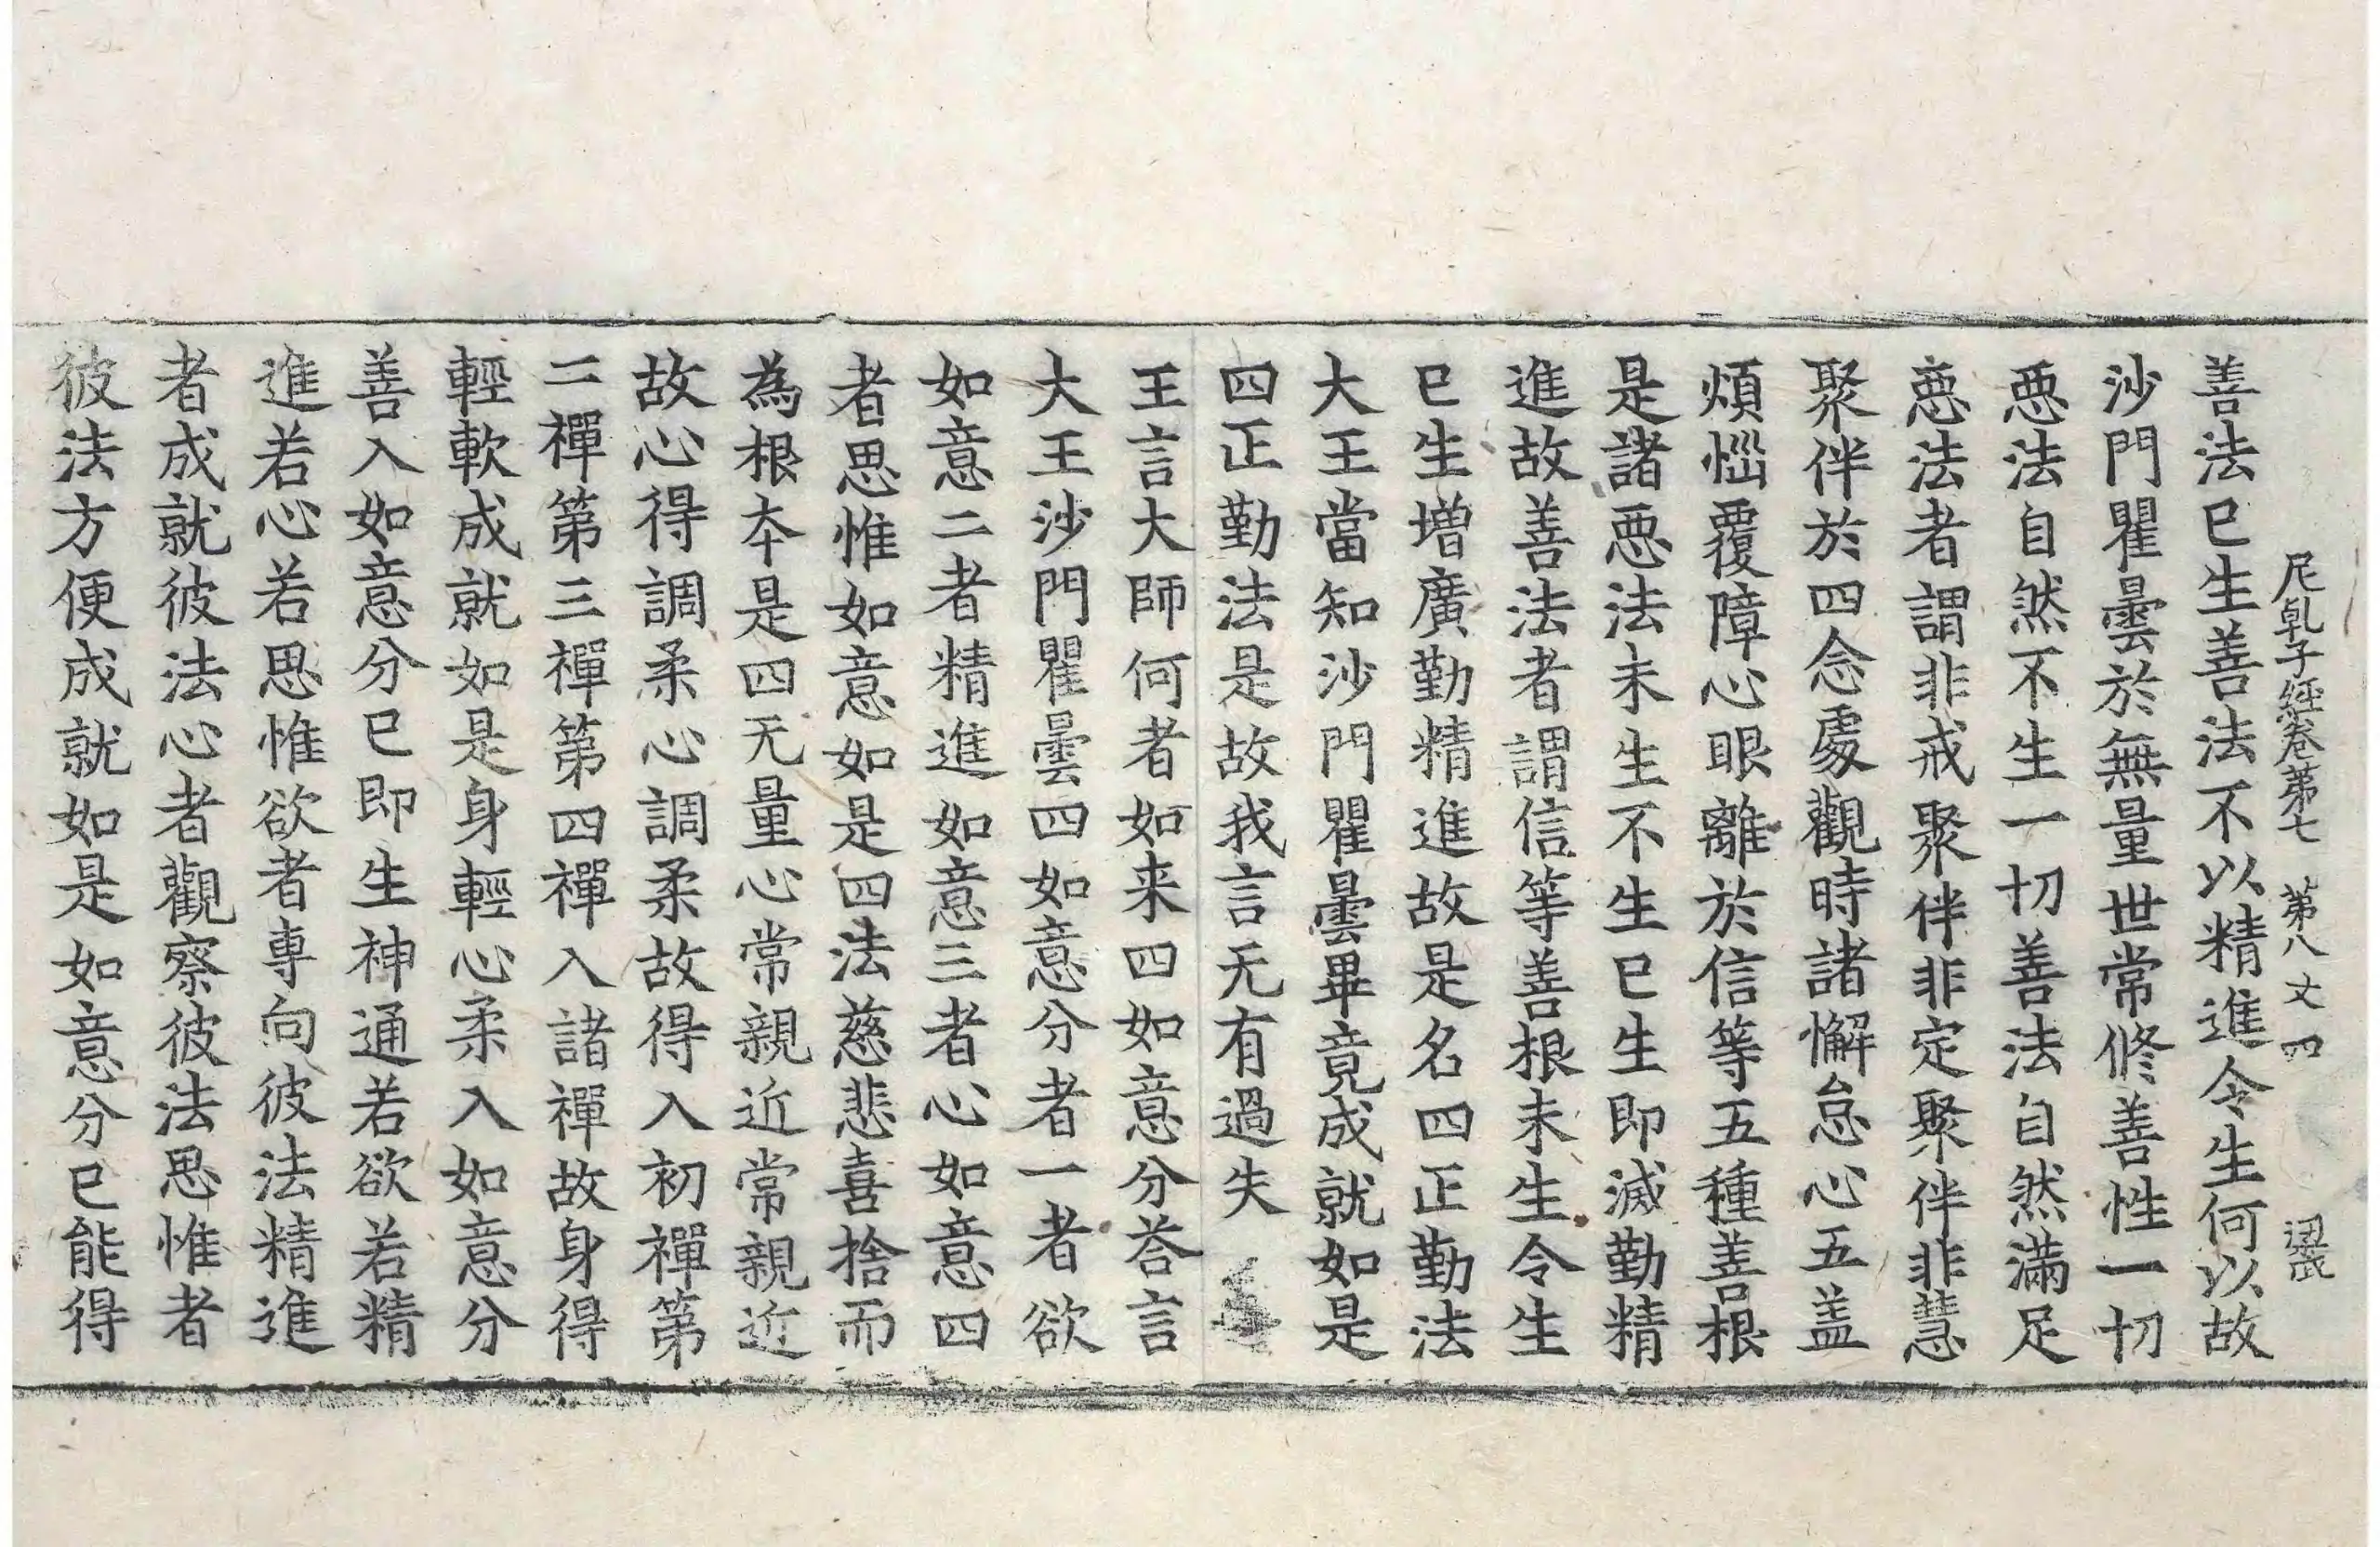 尼乹子経卷第七 第八丈 四
善法已生善法不以精進令生何以故
沙門瞿曇於無量世常修善性一切
惡法自然不生一切善法自然滿足
惡法者謂非戒聚伴非定聚伴非慧
聚伴於四念處觀時諸懈怠心五盖
煩惱覆障心眼離於信等五種善根
是諸惡法未生不生已生即滅勤精
進故善法者謂信等善根未生令生
已生増廣勤精進故是名四正勤法
大王當知沙門瞿曇畢竟成就如是
四正勤法是故我言无有過失
王言大師何者如来四如意分荅言
大王沙門瞿曇四如意分者一者欲
如意二者精進如意三者心如意四
者思惟如意如是四法慈悲喜捨而
為根本是四无量心常親近常親近
故心得調柔心調柔故得入初禪第
二禪第三禪第四禪入諸禪故身得
輕軟成就如是身輕心柔入如意分
善入如意分已即生神通若欲若精
進若心若思惟欲者専向彼法精進
者成就彼法心者觀察彼法思惟者
彼法方便成就如是如意分已能得